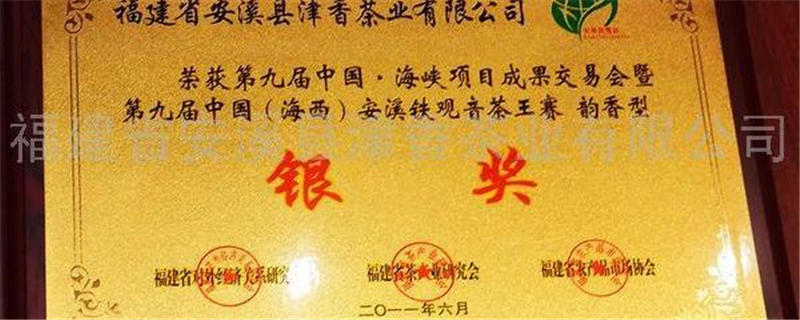 福建省安溪县津香茶业有限公司
荣获第九届中国·海峡项目成果交易会暨
第九届中国（海西）安溪铁观音茶王赛 韵香型
福建省安溪县津香茶业有限公司
银奖
福建省对外经济关系研究会
福建省茶产业研究会
福建省农产品市场协会
二〇一一年六月